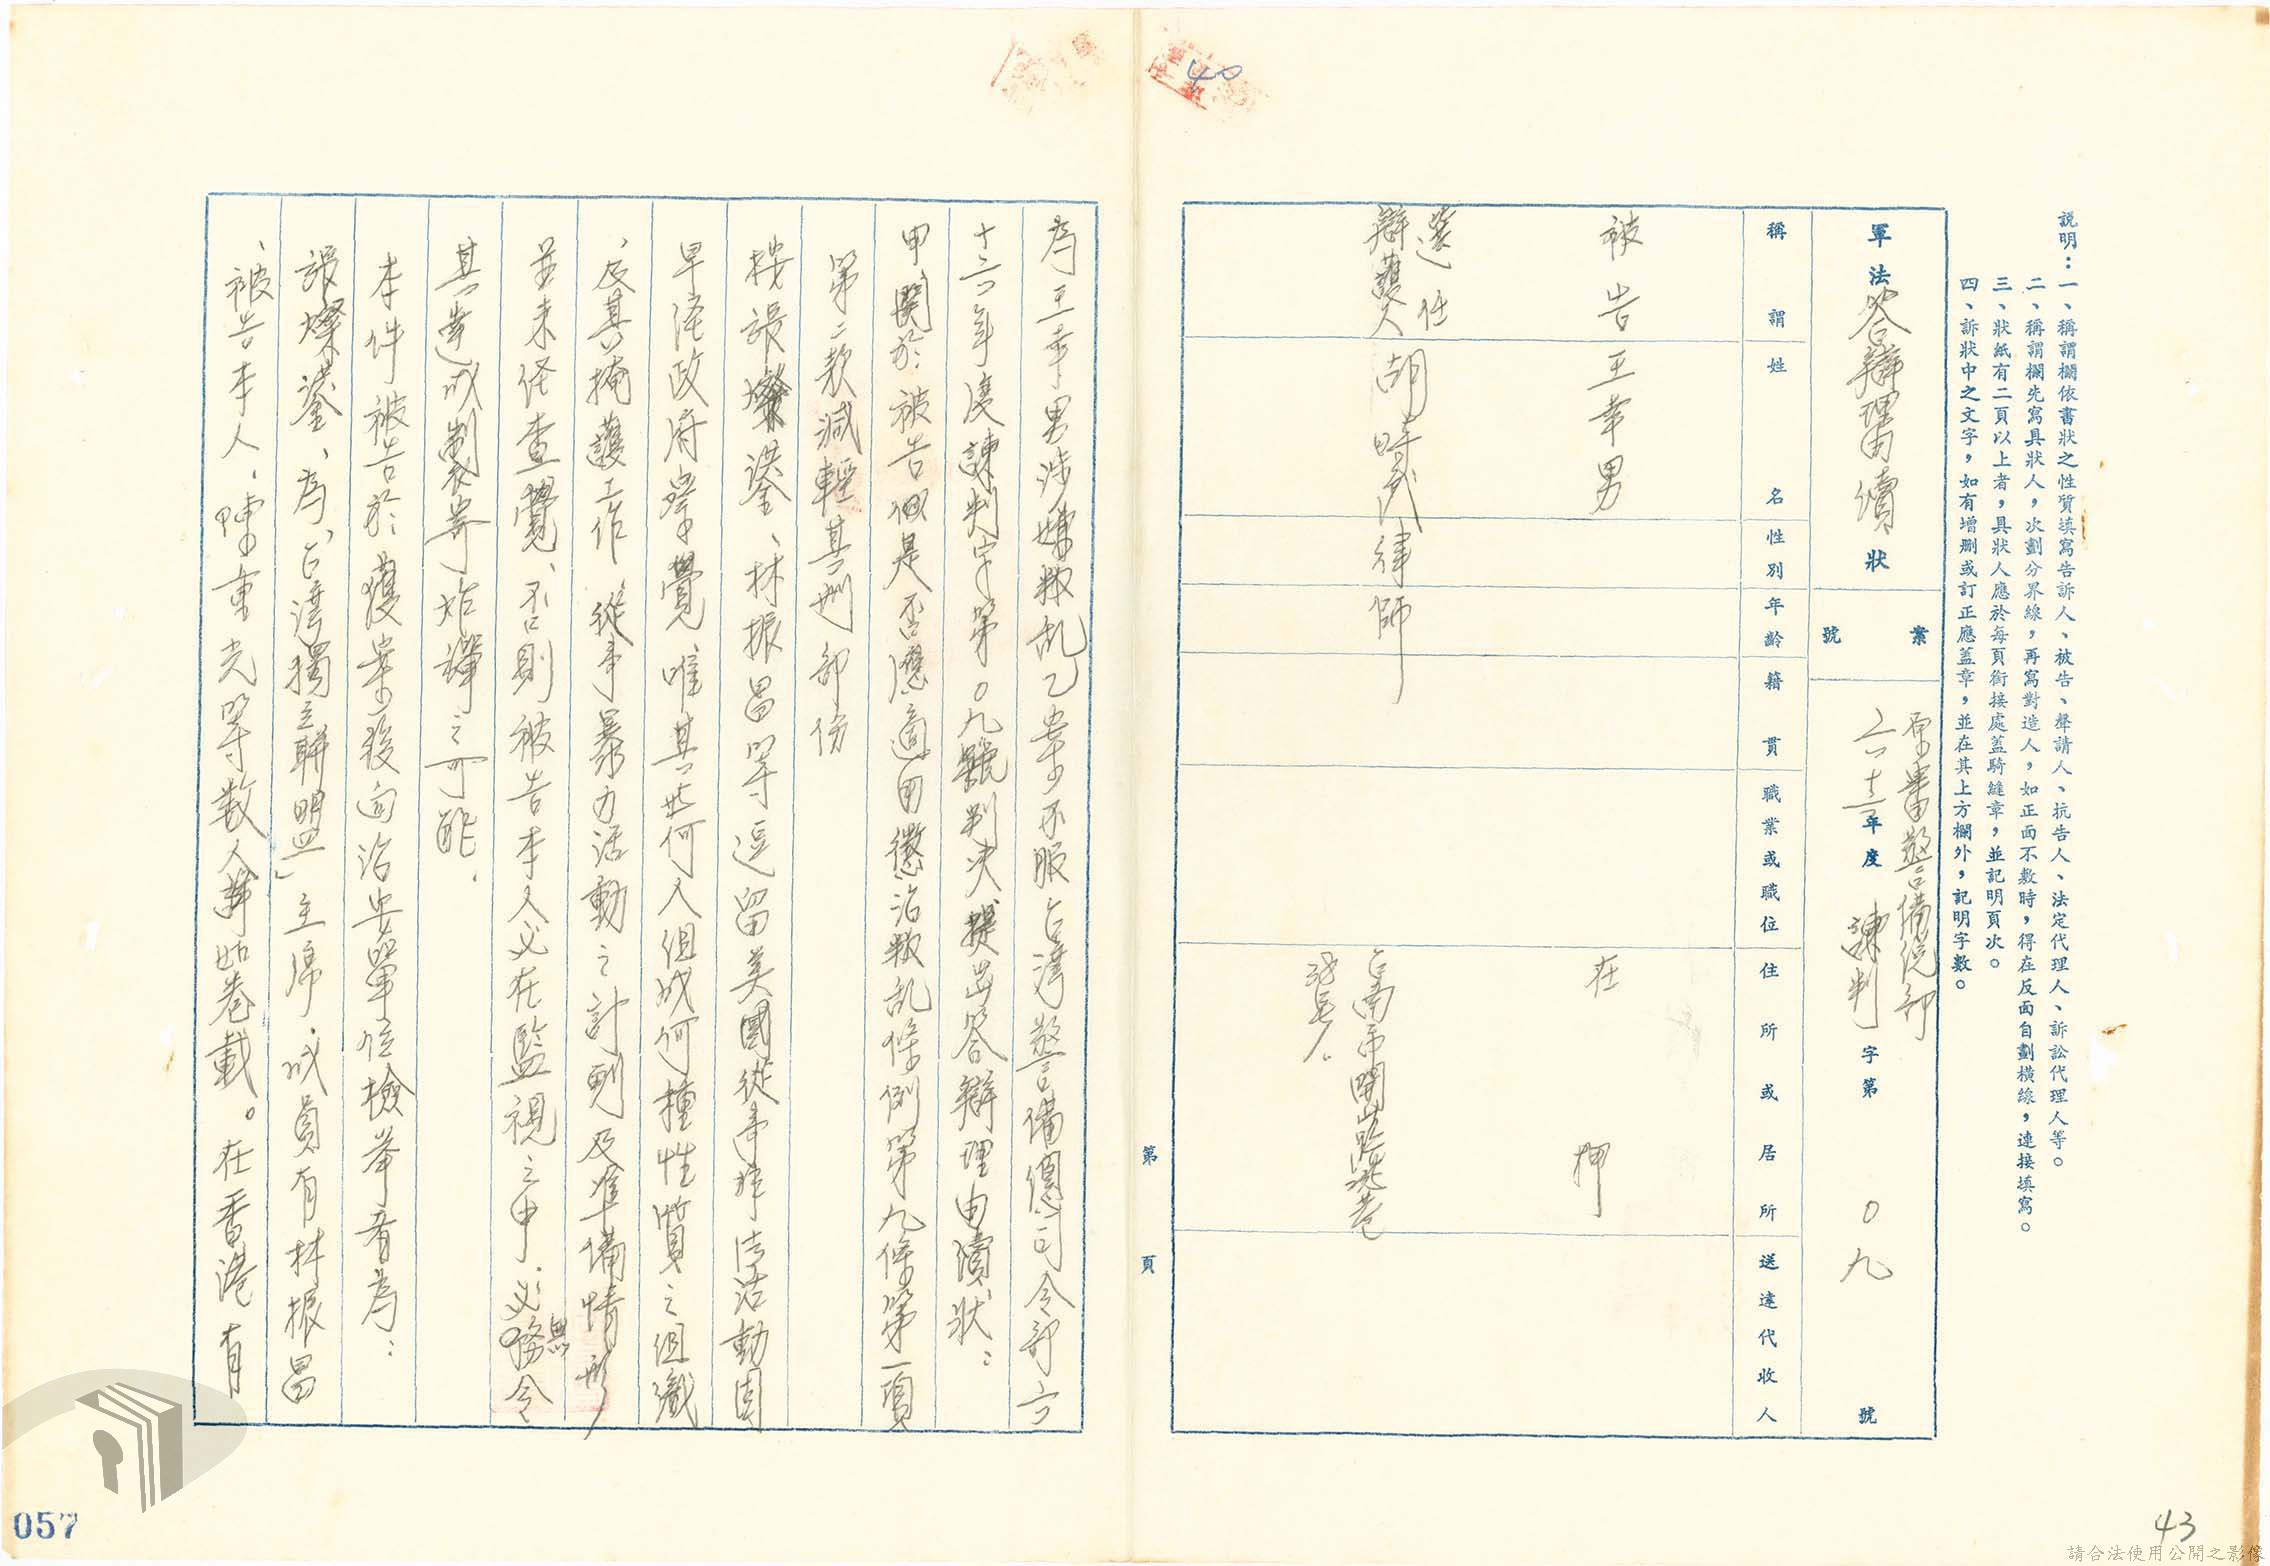 說明：一、稱謂欄依書狀之性質填寫告訴人、被告、聲請人、抗告人、法定代理人、訴訟代理人等。
二、稱謂欄先寫具狀人，次劃分界線，再寫對造人，如正面不敷時，得在反面自劃橫線，連接填寫。
三、狀紙有二頁以上者，具狀人應於每頁銜接處蓋騎縫章，並記明頁次。
四、訴狀中之文字，如有增刪或訂正應蓋章，並在其上方欄外，記明字數。
軍法答辯理由續狀
案號
原審警備總部
六十六年度諫判字第〇九號
稱謂
姓名
性別
年齡
籍貫
職業或職位
住所或居所
送達代收人
被告
王幸男
在押
選任
辯護人
胡時武律師
台南市開山路
第 頁
為王幸男涉嫌叛乱乙案不服台灣警備總司令部六
十六年度諫判字第〇九號判決提出答辯理由續狀：
甲、関於被告似是否應適用懲治叛乱條例第九條第一項
第二款減輕其刑部份
按張燦鍙、林振昌等逗留美國從事非法活動固
早經政府察覺唯其与何人組成何種性質之組織
、及其掩護工作從事暴力活動之計劃及準備情形
並未經查覺、不則被告本人必在監視之中、必無令
其達成製寄炸彈之可能．
本件被告於獲案後向治安單位檢举者為：
張燦鍙、為「台灣獨立聯盟」主席、成員有林振昌
、被告本人、陳重光等数人詳如卷載。在香港有
40
43
057
請合法使用公開之影像